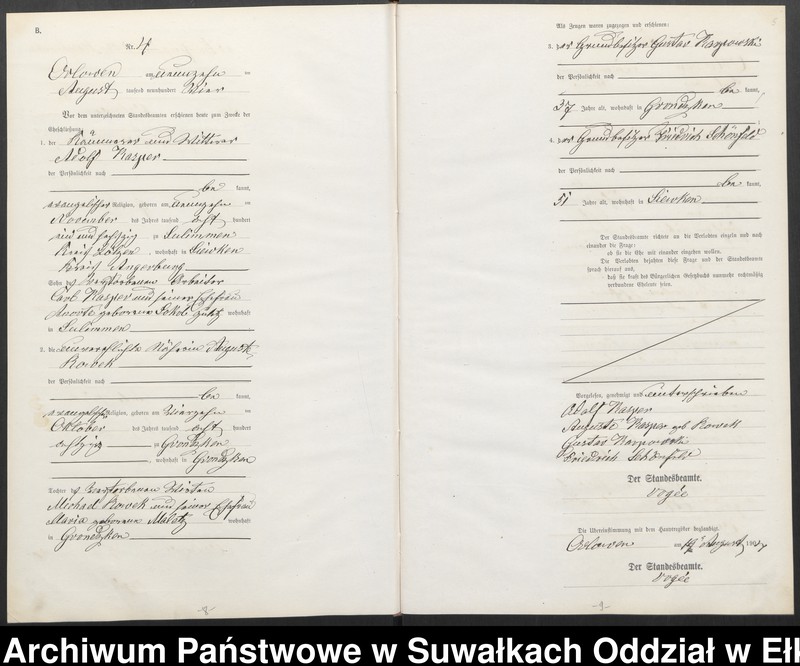 B.
Nr. 14
Orlowen am neunzehnten
August tausend neunhundert vier
Vor dem unterzeichneten Standesbeamten erschienen heute zum Zwecke der
Eheschließung:
1. der Kämmerer und Wittwer
Adolf Kasper
der Persönlichkeit nach
be kannt,
evangelischer Religion, geboren am neunzehnten
November des Jahres tausend acht hundert
ein und sechszig zu Sulimmen
Kreis Lötzen, wohnhaft in Siewken
Kreis Angerburg
Sohn des verstorbenen Arbeiter
Carl Kasper und seiner Ehefrau
geborene Sokol zuletzt wohnhaft
in Sulimmen
2. die unverehelichte Näherin Auguste
Rowek
der Persönlichkeit nach
be kannt,
evangelischer Religion, geboren am vierzehnten
Oktober des Jahres tausend acht hundert
achtzig zu Grondzken
, wohnhaft in Grondzken
Tochter des verstorbenen Wirten
Michael Rowek und seiner Ehefrau
Maria geborene wohnhaft
in Grondzken
-8-
5
Als Zeugen waren zugezogen und erschienen:
3. der Grundbesitzer Gustav Karpowski
der Persönlichkeit nach
be kannt,
37 Jahre alt, wohnhaft in Grondzken
4. der Grundbesitzer Friedrich Schönfeld
der Persönlichkeit nach
be kannt,
51 Jahre alt, wohnhaft in Siewken
Der Standesbeamte richtete an die Verlobten einzeln und nach
einander die Frage:
ob sie die Ehe mit einander eingehen wollen.
Die Verlobten bejahten diese Frage und der Standesbeamte
sprach hierauf aus,
daß sie kraft des Bürgerlichen Gesetzbuchs nunmehr rechtmäßig
verbundene Eheleute seien.
Vorgelesen, genehmigt und unterschrieben
Adolf Kasper
Auguste Kasper geb Rowek
Gustav Karpowski
Friedrich Schönfeld
Der Standesbeamte.
Vogée
Die Übereinstimmung mit dem Hauptregister beglaubigt.
Orlowen am 19 August 1904
Der Standesbeamte.
Vogée
-9-
Archiwum Państwowe w Suwałkach Oddział w Ełk